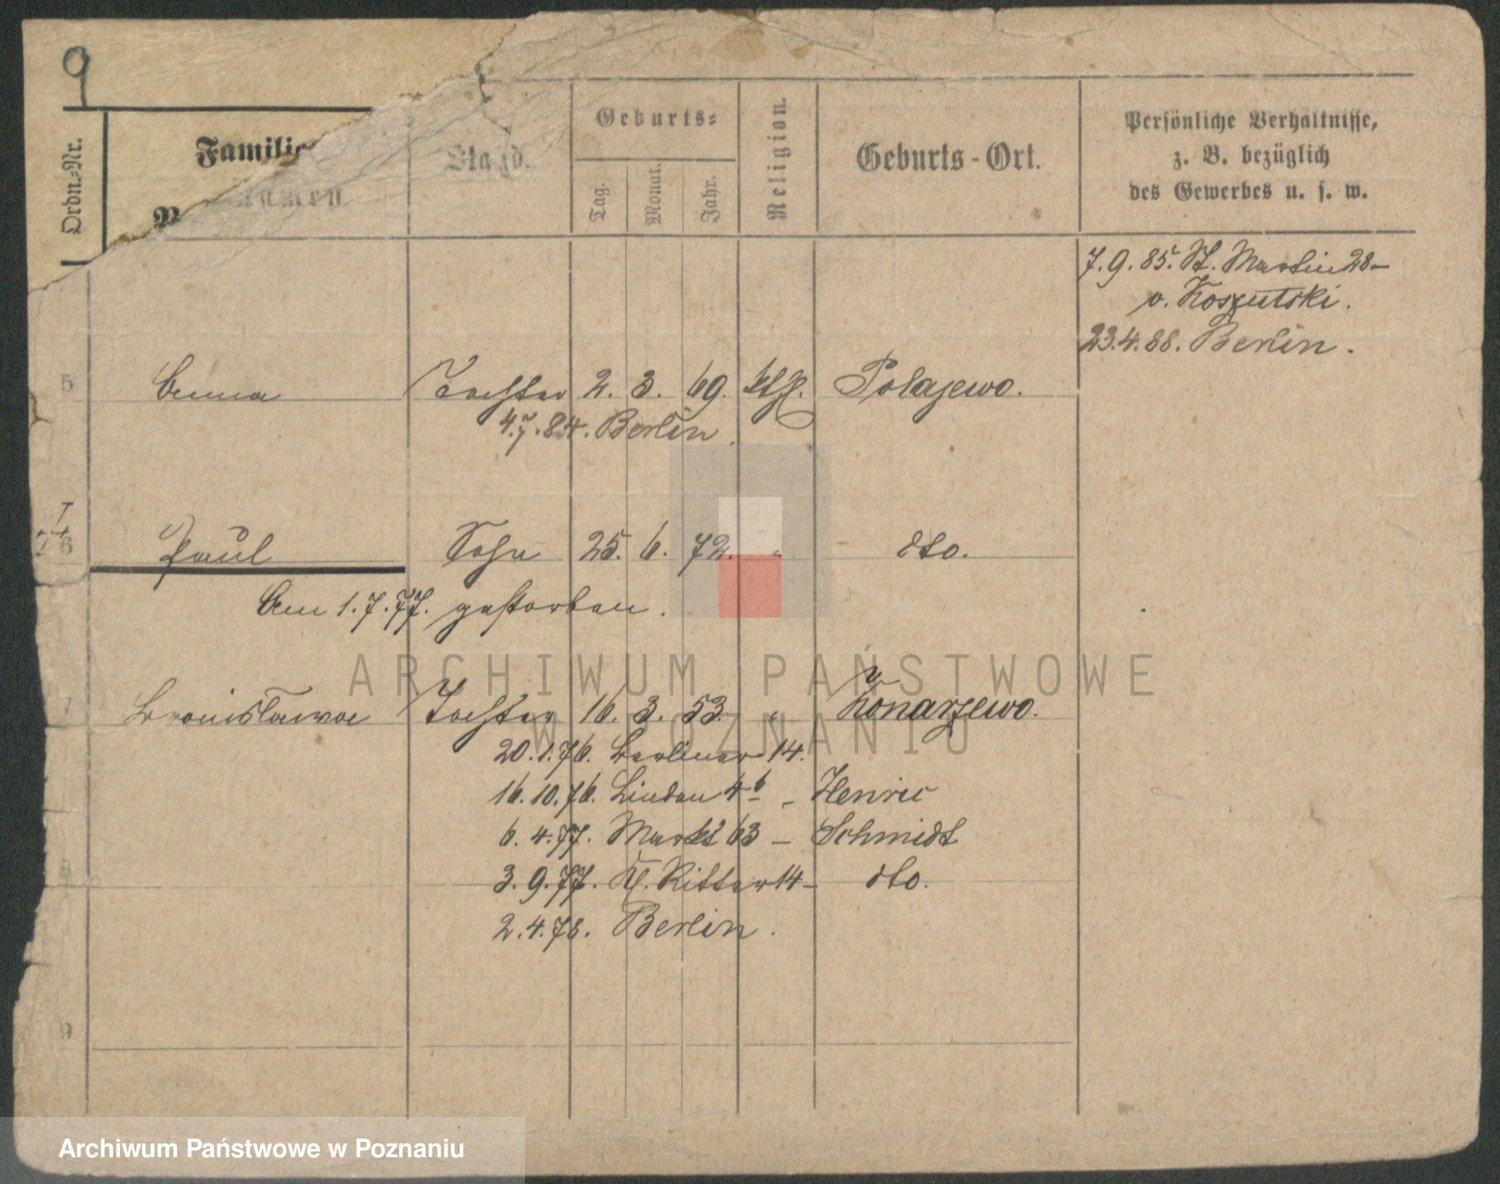 9
Ordn.-Nr.
Familie
Namen
Stand.
Geburts-
Tag.
Monat.
Jahr.
Religion.
Geburts-Ort.
Persönliche Verhältnisse,
z. B. bezüglich
des Gewerbes u. s. w.
7.9.85. St. Martin 28-
v. Koszutski.
23.4.88. Berlin.
5 Anna Tochter 2. 3. 69. kth. Polajewo.
4.7.84. Berlin.
6 Paul Sohn 25. 6. 72. " dto.
Am 1.7.77. gestorben.
7 Bronislawa Tochter 16. 3. 53. " Konarzewo.
20.1.76. Berliner 14.
16.10.76. Linden 4 b - Henric
6.4.77. Markt 63 - Schmidt
8
3.9.77. Kl. Ritter 14 - dto.
2.4.78. Berlin.
9
ARCHIWUM PAŃSTWOWE
W POZNANIU
Archiwum Państwowe w Poznaniu